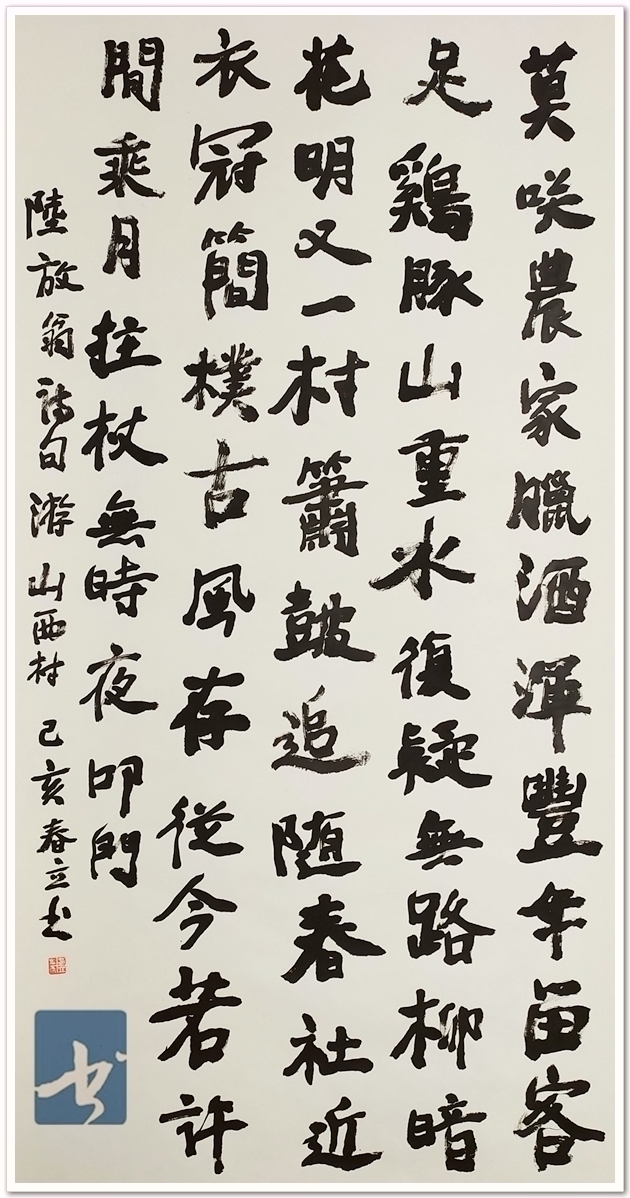 莫咲農家臘酒渾豐年留客
足鷄豚山重水復疑無路柳暗
花明又一村簫鼓追随春社近
衣冠簡樸古風存從今若許
閒乘月拄杖無時夜叩門
陸放翁詩句游山西村己亥春立书
书